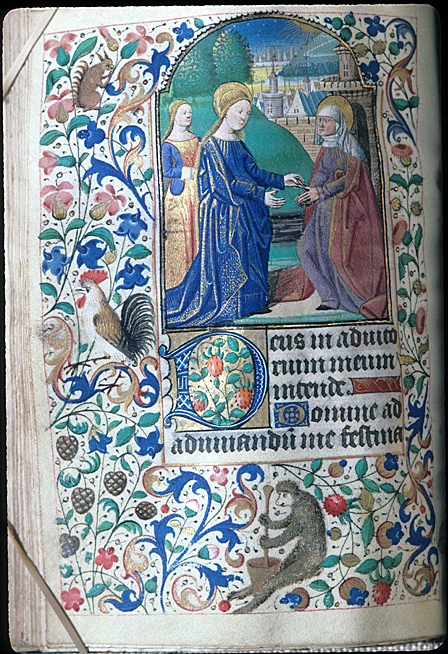 Deus in adiuto
rium meum
intende.
Domine ad
adiuuandū me festina